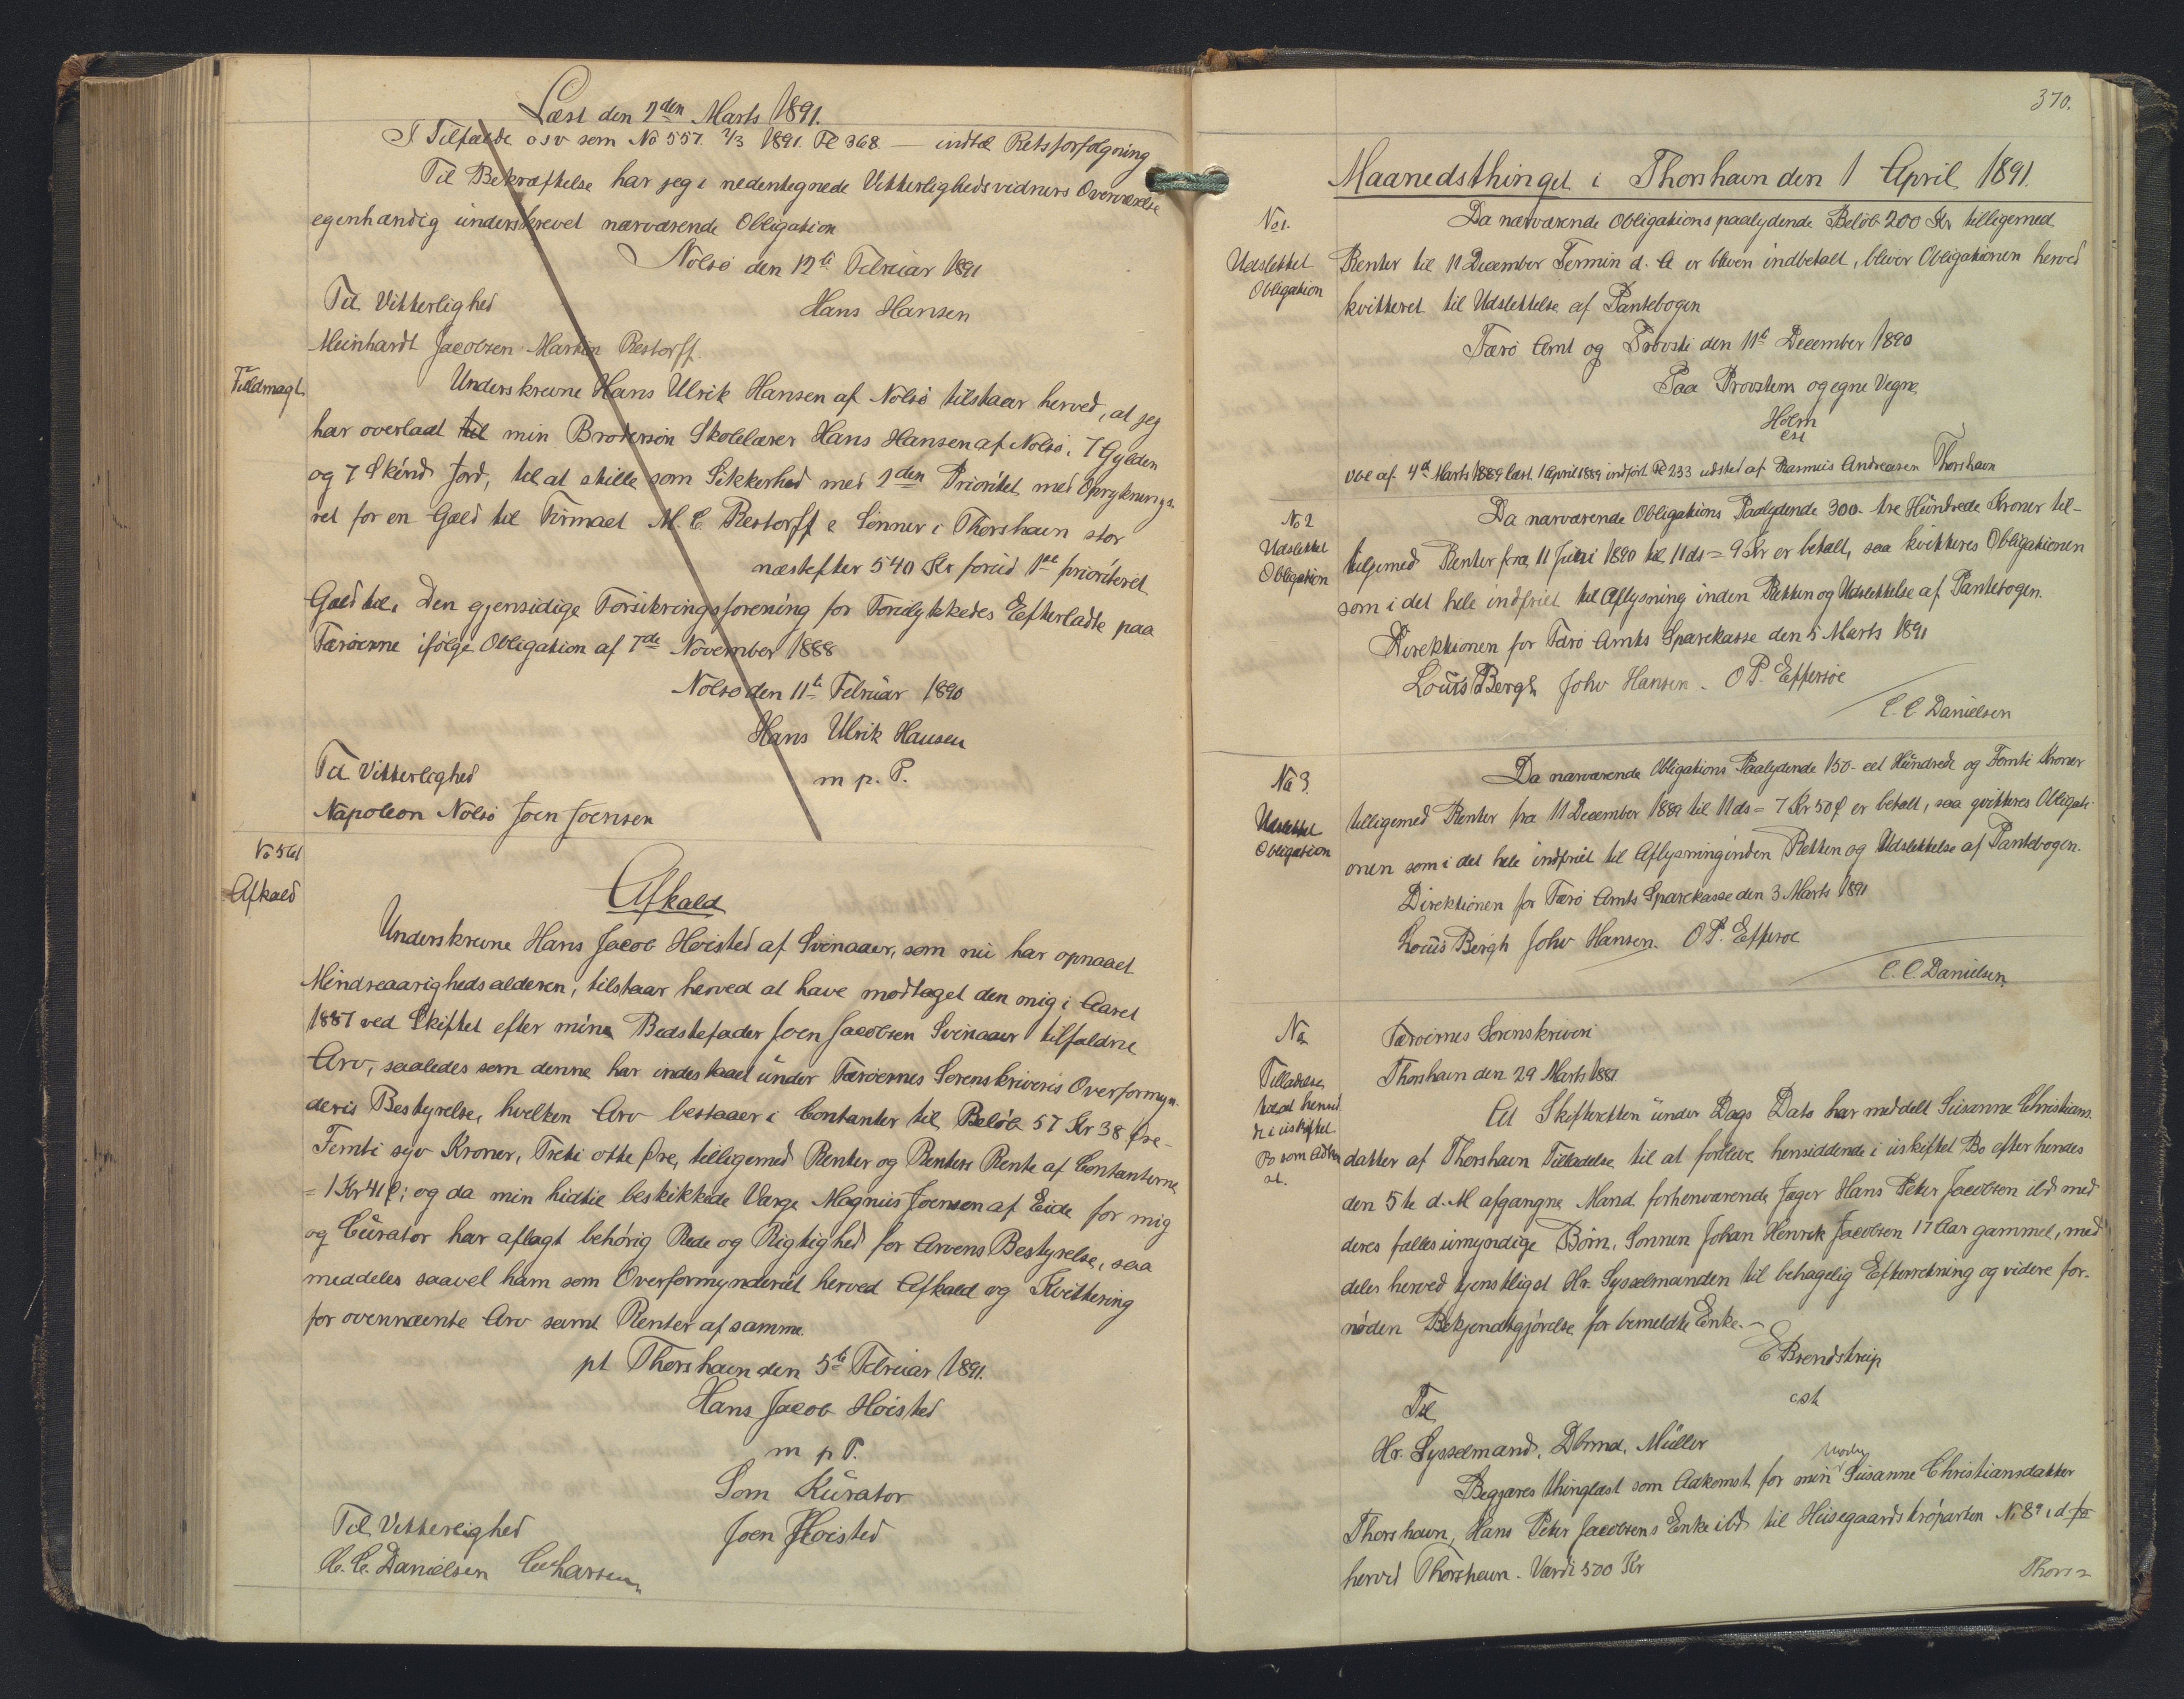 Læst den 2den Marts 1891.
I Tilfælde osv som No 557. 2/3 1891. Fl 368 — indtil Retsforfølgning
Til Bekræftelse har jeg i nedentegnede Vitterlighedsvidners Overværelse
egenhændig underskrevet nærværende Obligation
Nolsø den 12te Februar 1891
Til Vitterlighed
Hans Hansen
Meinhardt Jacobsen Martin Restorff.
Fuldmagt.
Underskrevne Hans Ulrik Hansen af Nolsø tilstaar herved, at jeg
har overladt til min Brodersøn Skolelærer Hans Hansen af Nolsø, 7 Gylden
og 7 Skind Jord, til at stille som Sikkerhed med 2den Prioritet med Opryknings-
ret for en Gæld til Firmaet M. C. Restorff & Sønner i Thorshavn stor
næstefter 540 Kr forud 1ste prioriteret
Gæld til, Den gjensidige Forsikringsforening for Forulykkedes Efterladte paa
Færøerne ifølge Obligation af 7de November 1888
Nolsø den 11te Februar 1890
Hans Ulrik Hansen
Til Vitterlighed
m p. P.
Napoleon Nolsø Joen Joensen
No 561
Afkald
Afkald
Underskrevne Hans Jacob Høisted af Svinaaer, som nu har opnaaet
Mindreaarighedsalderen, tilstaar herved at have modtaget den mig i Aaret
1887 ved Skiftet efter min Bedstefader Joen Jacobsen Svinaaer tilfaldne
Arv, saaledes som denne har indestaaet under Færøernes Sorenskriveris Overformyn-
deris Bestyrelse, hvilken Arv bestaaer i Contanter til Beløb 57 Kr 38 Øre -
Femti syv Kroner, Treti otte Øre, tilligemed Renter og Rentes Rente af Contanterne
= 1 Kr 41 Ø; og da min hidtil beskikkede Værge Magnus Joensen af Eide for mig
og Curator har aflagt behørig Rede og Rigtighed for Arvens Bestyrelse, saa
meddeles saavel ham som Overformynderiet herved Afkald og Kvittering
for ovennævnte Arv samt Renter af samme.
pt Thorshavn den 5te Februar 1891.
Hans Jacob Høisted
m p P.
Som Kurator
Til Vitterlighed
Joen Høisted
C. C. Danielsen
370.
Maanedsthinget i Thorshavn den 1 April 1891.
No 1.
Udslettet
Obligation
Da nærværende Obligations paalydende Beløb 200 Kr tilligemed
Renter til 11 December Termin d. A er bleven indbetalt, bliver Obligationen herved
kvitteret til Udslettelse af Pantebogen
Færø Amt og Provsti den 11te December 1890
Paa Provstens og egne Vegne
Holm
cst
Obl af 4de Marts 1889 læst 1 April 1889 indført Fl 233 udsted af Rasmus Andreasen Thorshavn
No 2
Udslettet
Obligation
Da nærværende Obligations Paalydende 300 - tre Hundrede Kroner til-
ligemed Renter fra 11 Juni 1890 til 11 ds = 9 Kr er betalt, saa kvitteres Obligationen
som i det hele indfriet til Aflysning inden Retten og Udslettelse af Pantebogen.
Direktionen for Færø Amts Sparekasse den 5 Marts 1891
Louis Bergh John Hansen. O P. Effersøe
C. C. Danielsen
No 3.
Udslettet
Obligation
Da nærværende Obligations Paalydende 150 - eet Hundrede og Femti Kroner
tilligemed Renter fra 11 December 1889 til 11 ds = 7 Kr 50 Ø er betalt, saa qvitteres Obligati-
onen som i det hele indfriet til Aflysning inden Retten og Udslettelse af Pantebogen.
Direktionen for Færø Amts Sparekasse den 3 Marts 1891
Louis Bergh John Hansen. O P. Effersøe
C. C. Danielsen
No
Tilladelse
til at hensid-
de i uskiftet
Bo som Adkom
st.
Færøernes Sorenskriveri
Thorshavn den 29 Marts 1881.
At Skifteretten under Dags Dato har meddelt Susanne Christians-
datter af Thorshavn Tilladelse til at forblive hensiddende i uskiftet Bo efter hendes
den 5te d. M afgangne Mand forhenværende Jæger Hans Peter Jacobsen ibd med
deres fælles umyndige Børn, Sønnen Johan Henrik Jacobsen 17 Aar gammel, med
deles herved tjenstligst Hr. Sysselmanden til behagelig Efterretning og videre for-
nøden Bekjendtgjørelse for bemeldte Enke. -
E Brendstrup
cst
Til
Hr. Sysselmand, Dbmd, Müller
Begjæres thinglæst som Adkomst for min Moder Susanne Christiansdatter
Thorshavn, Hans Peter Jacobsens Enke ibd til Husegaards trøparten No 89 i d
herved Thorshavn. Værdi 500 Kr
Thors=